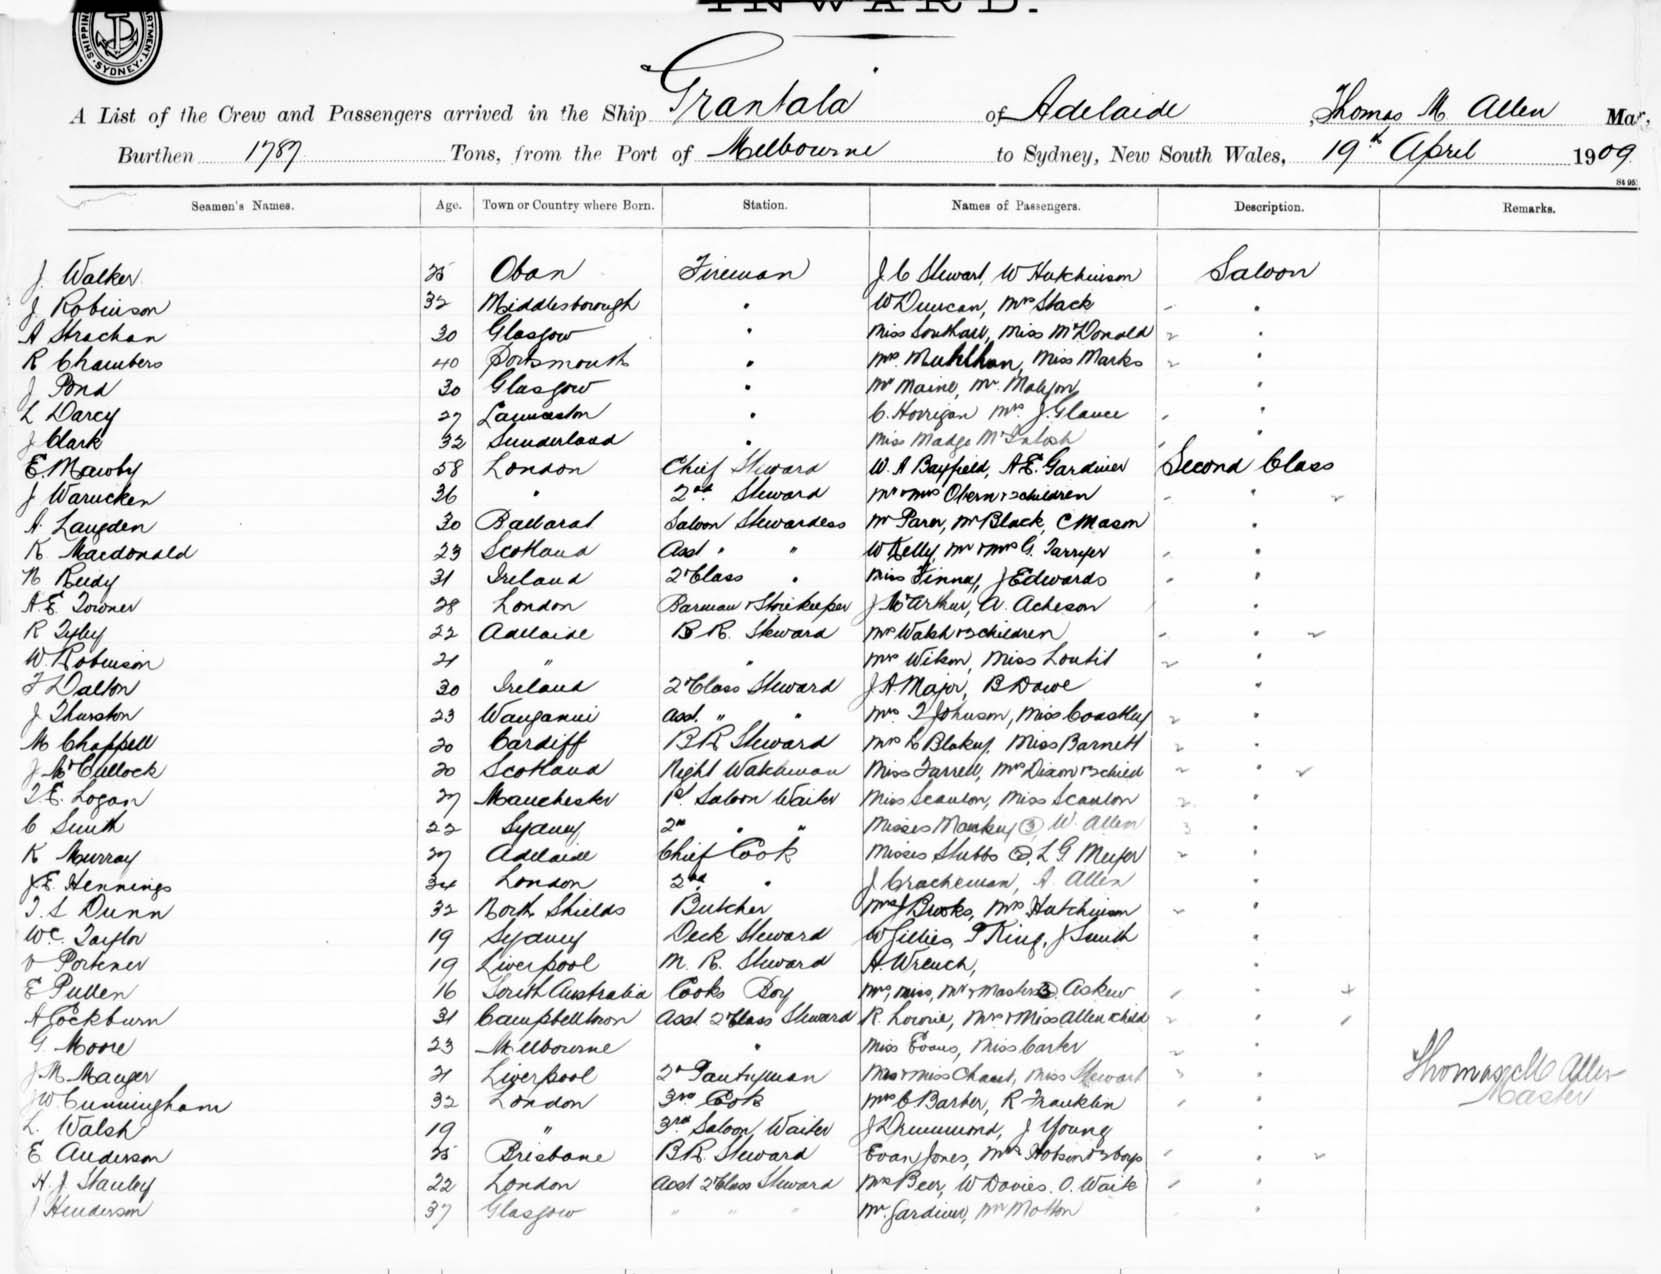 INWARD.
SHIPPING DEPARTMENT SYDNEY
A List of the Crew and Passengers arrived in the Ship Grantala of Adelaide, Thomas M Allen Mar,
Burthen 1787 Tons, from the Port of Melbourne to Sydney, New South Wales, 19th April 1909
Seamen's Names. Age. Town or Country where Born. Station. Names of Passengers. Description. Remarks.
J Walker 25 Oban Fireman J C Stewart, W Hutchinson Saloon
J Robinson 32 Middlesborough " W Duncan, Mrs Stack "
A Strachan 30 Glasgow " Miss Southall, Miss McDonald "
R Chambers 40 Portsmouth " Mrs Muhlhan, Miss Marks "
J Pond 30 Glasgow " Mr Maine, Mr "
L Darcy 27 Launceston " C. Horrigan Mrs J. Glance "
J Clark 32 Sunderland " Miss Madge McIntosh "
E. Mawby 58 London Chief Steward W. A Bayfield, A E. Gardiner Second Class
J Warucken 36 " 2nd Steward Mr & Mrs Obern & 2 children "
A. Langden 30 Ballarat Saloon Stewardess Mr Parer, Mr Black, C Mason "
K Macdonald 23 Scotland Asst " " W Kelly, Mr & Mrs G. "
N Reidy 31 Ireland 2nd Class " Miss Finnay, J Edwards "
A E. Towner 28 London Barman & Storekeeper J McArthur, A. Acheson "
R Tyley 22 Adelaide B R. Steward Mrs Walsh & 3 children "
W. Robinson 21 " " Mrs Wilson, Miss Loutit "
F Dalton 30 Ireland 2nd Class Steward J A Major, B Dowe "
J Thurston 23 Wanganui Asst. " " Mrs T Johnson, Miss Coastley "
M Chappell 20 Cardiff B R Steward Mrs L Blakey, Miss Barnett "
J McCullock 20 Scotland Night Watchman Miss Farrell, Mrs Dixon & child "
T E. Logan 27 Manchester 1st Saloon Waiter Miss Scanlon, Miss Scanlon "
C Smith 22 Sydney 2nd " " Misses Mackey (3) W. Allen "
K Murray 27 Adelaide Chief Cook Misses Stubbs (2), L G. Meyer "
J E. Hennings 34 London 2nd " J Cracheman, A. Allen "
T. S Dunn 32 North Shields Butcher Mrs J Brooks, Mrs Hutchinson "
W C. Taylor 19 Sydney Deck Steward W Gillies, P King, J Smith "
V Portener 19 Liverpool M. R. Steward H. Wrench, "
E Pullen 16 South Australia Cooks Boy Mrs, Miss, Mr & Masters (3) Askew "
A Cockburn 31 Campbelltown Asst 2 Class Steward R. Lowrie, Mrs & Miss Allen & child "
G. Moore 23 Melbourne " Miss Evans, Miss Carter "
J M Mauger 21 Liverpool 2nd Pantryman Mrs & Miss Chant, Miss Stewart " Thomas M Allen
J W Cunningham 32 London 3rd Cook Mrs C Barber, R Franklin " Master
L. Walsh 19 " 3rd Saloon Waiter J Drummond, J Young "
E Anderson 25 Brisbane B R. Steward Evan Jones, Mrs Hobson & 2 boys "
H. J. Stanley 22 London Asst 2 Class Steward Mrs Beer, W Davies. O. Waite "
J Henderson 37 Glasgow " " " Mr. Gardiner, Mr Motton "